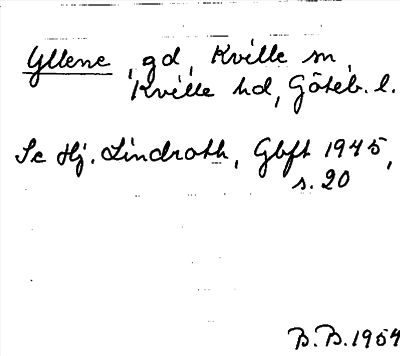 Yllene, gd, Kville sn,
Kville hd, Göteb. l.
Se Hj. Lindroth, Gbft 1945,
s. 20
B.B. 1954